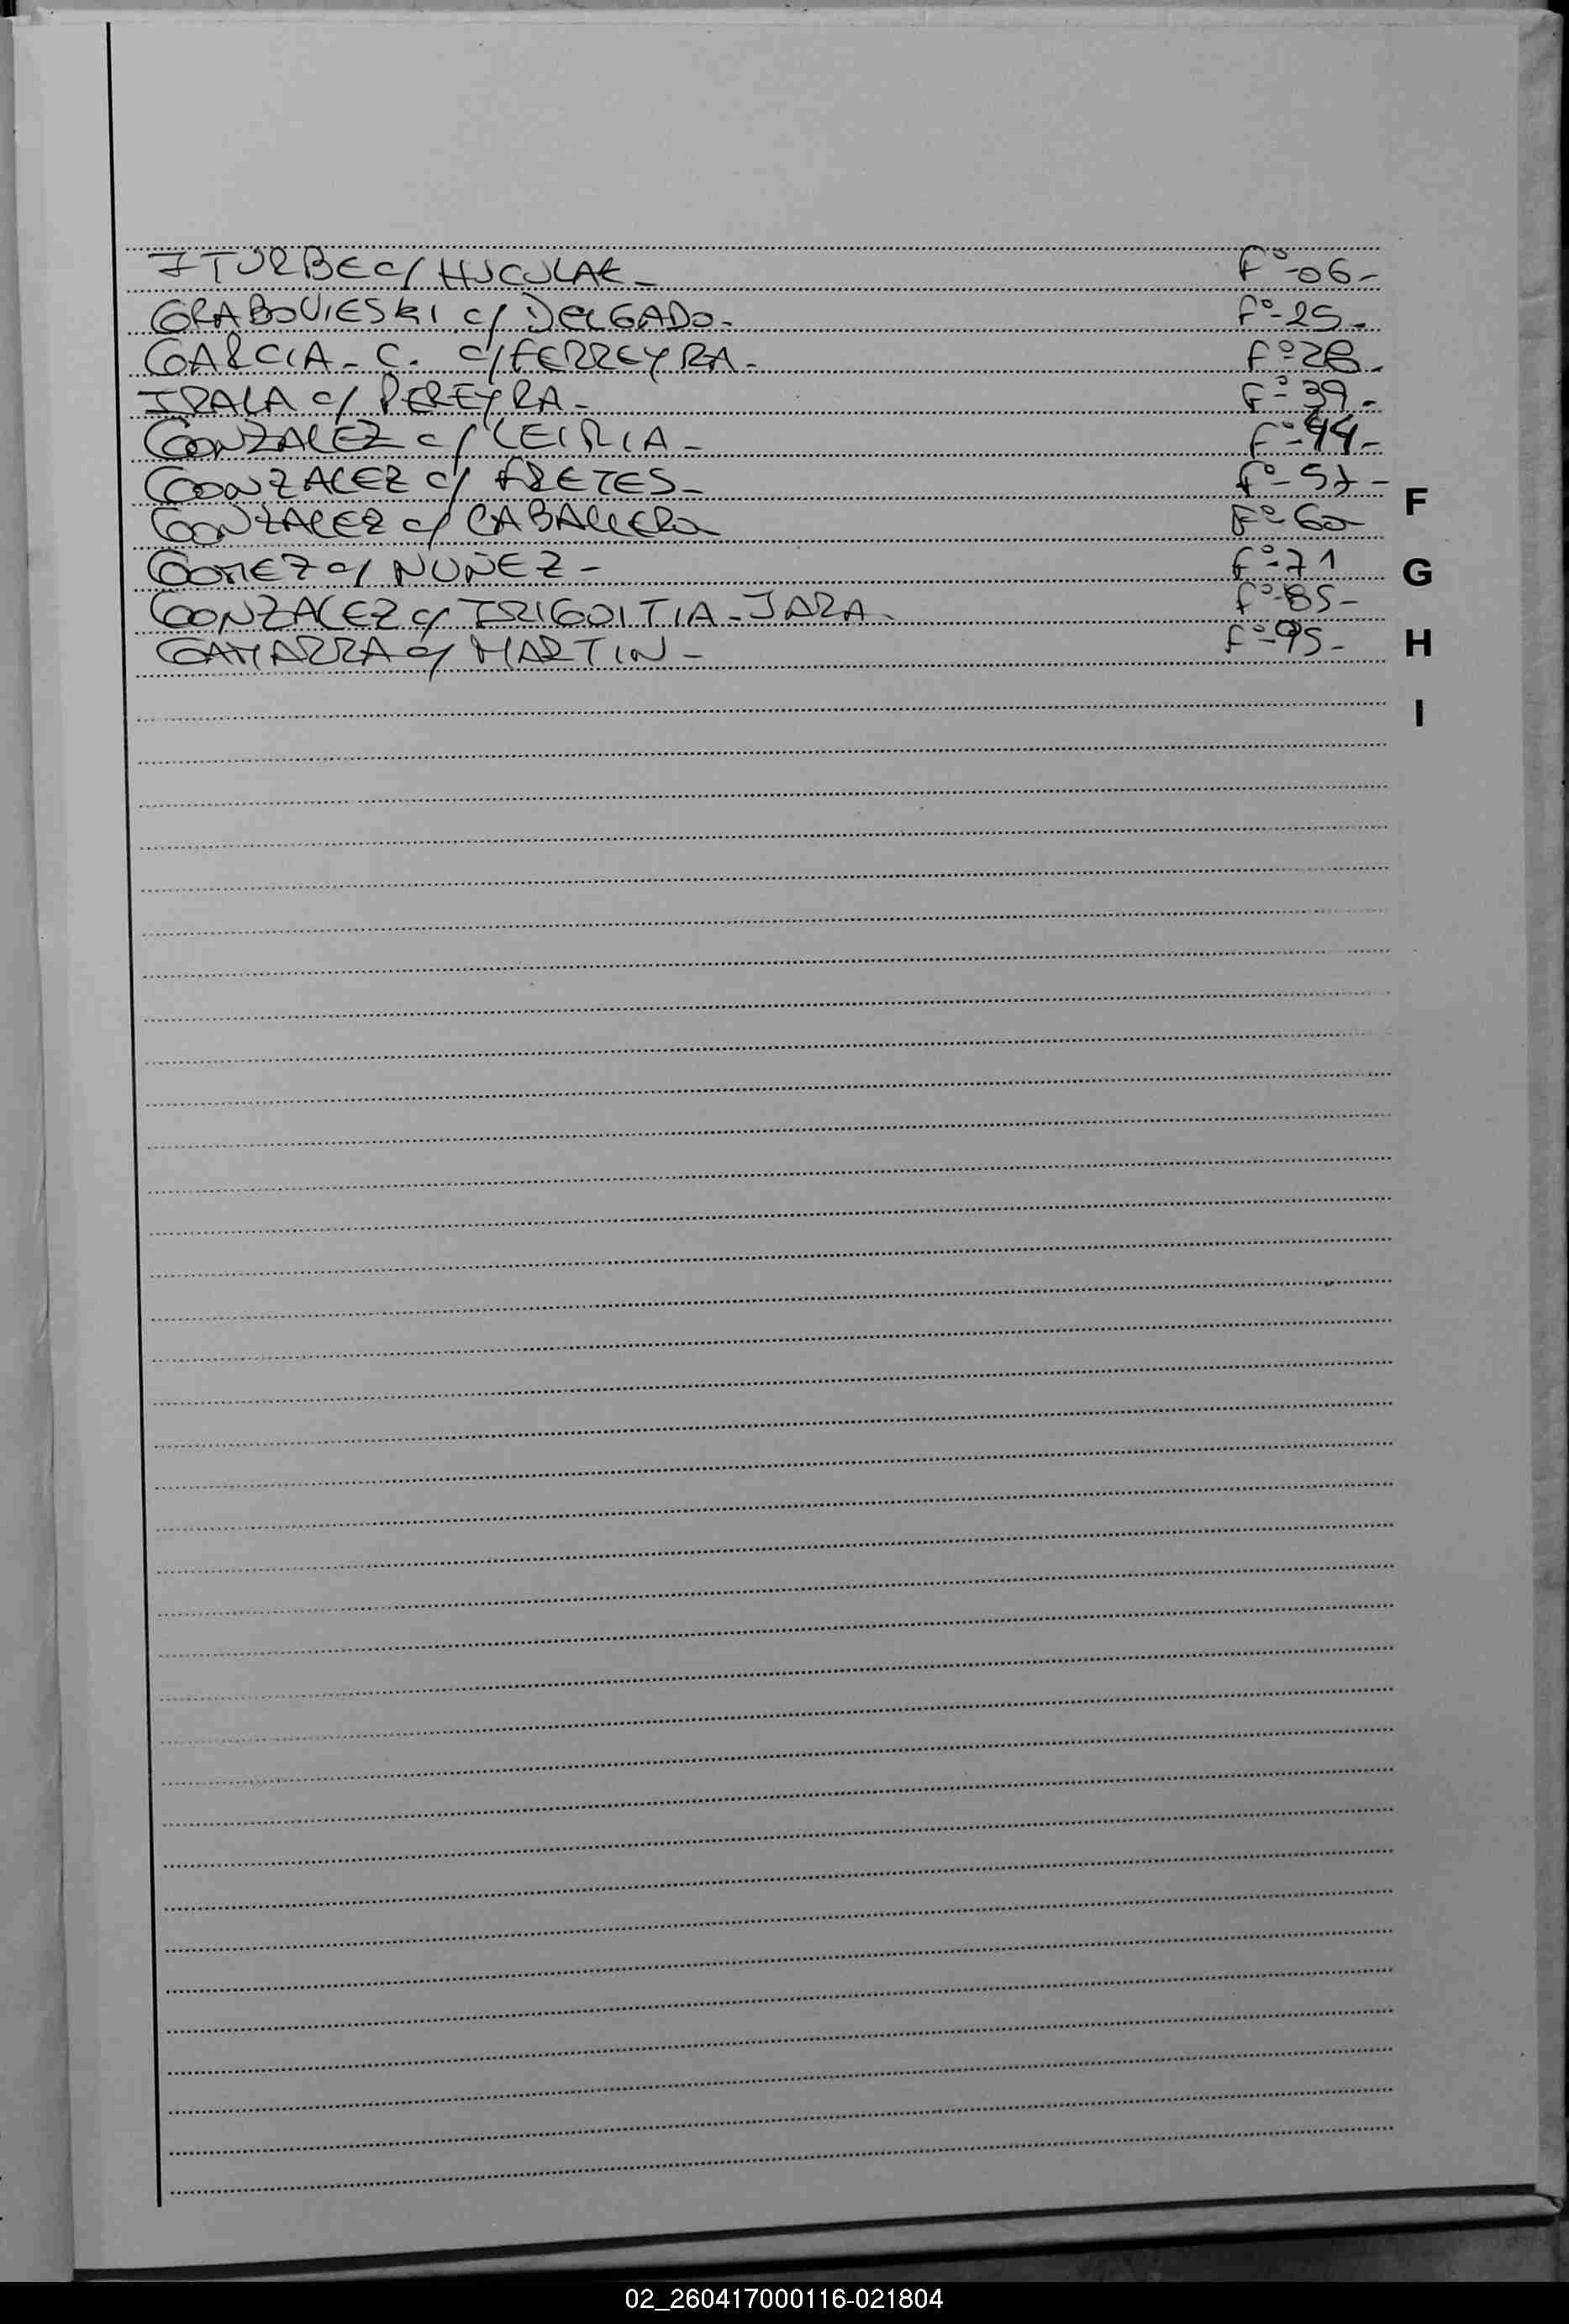 ITURBE c/ HUCULAK - Fº-06-
GRABOVIESKI c/ DELGADO- Fº-25-
GARCIA - C. c/ FERREYRA- Fº-28.
IRALA c/ PEREYRA- Fº-39-
GONZALEZ c/ LEIRIA- Fº-44-
GONZALEZ c/ FRETES- Fº-57-
GONZALEZ c/ CABALLERO Fº-60-
GOMEZ c/ NUÑEZ- Fº-71
GONZALEZ c/ IRIGOITIA-JARA- Fº-85-
GAMARRA c/ MARTIN- Fº-95-
F
G
H
I
02_260417000116-021804